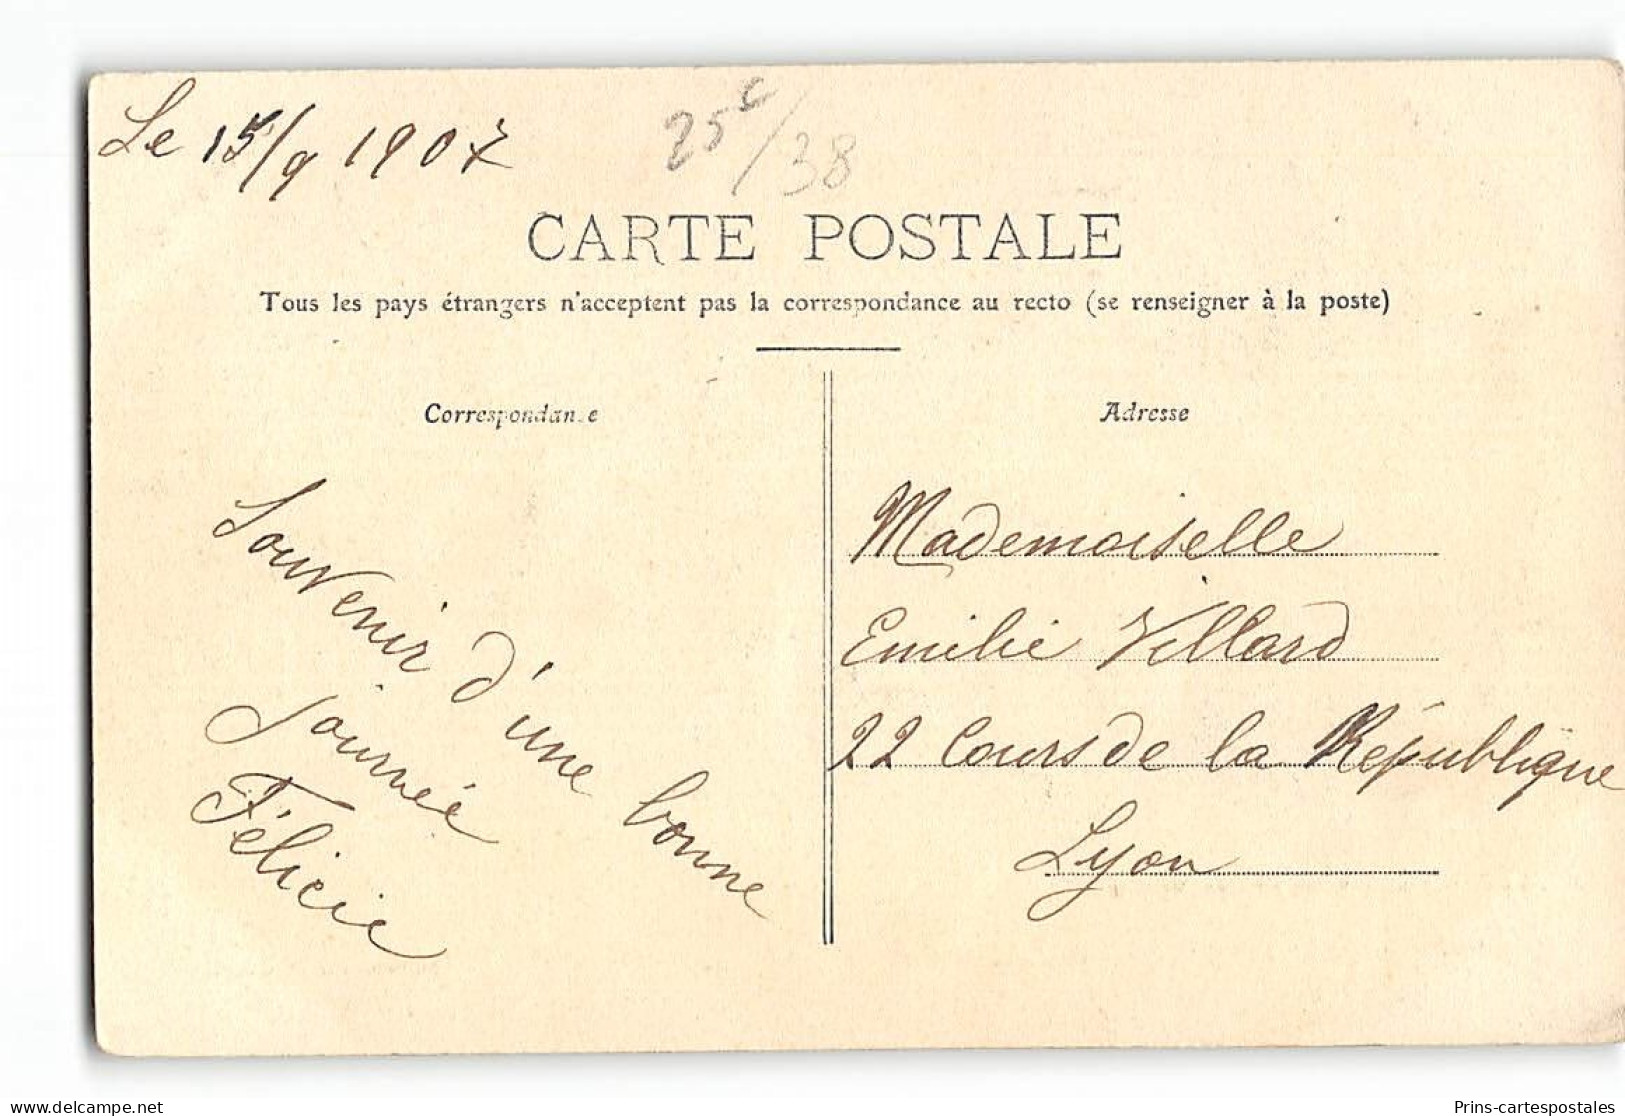 Le 15/9 1907
25c/38
CARTE POSTALE
Tous les pays étrangers n'acceptent pas la correspondance au recto (se renseigner à la poste)
Correspondance
Souvenir d'une bonne
journée
Félicie
Adresse
Mademoiselle
Emilie Villard
22 Cours de la République
Lyon
www.delcampe.net
Prins-cartespostales